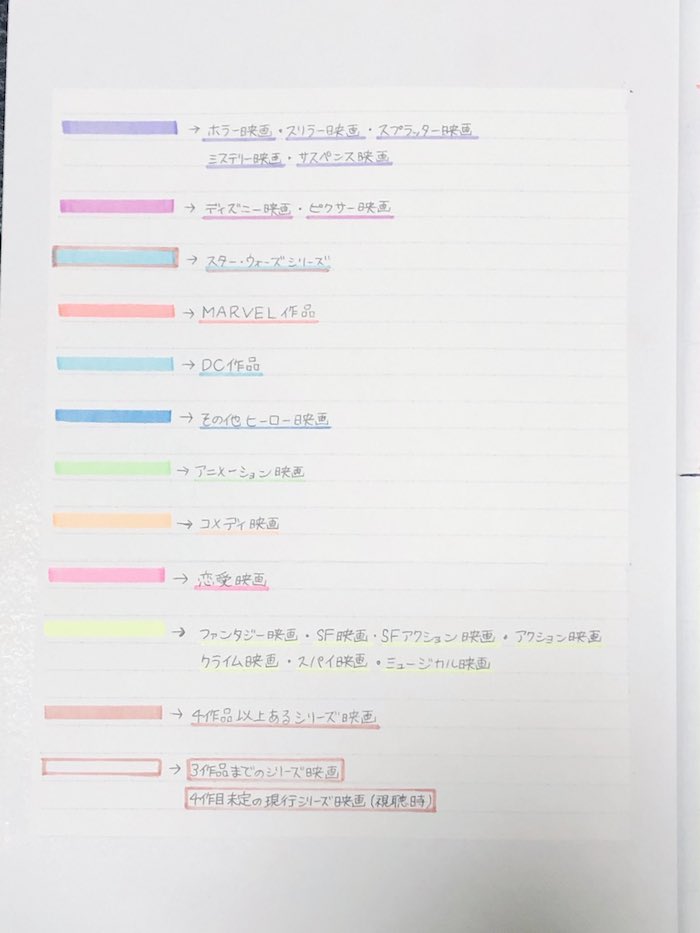 → ホラー映画・スリラー映画・スプラッター映画
ミステリー映画・サスペンス映画
→ ディズニー映画・ピクサー映画
→ スター・ウォーズシリーズ
→ MARVEL作品
→ DC作品
→ その他ヒーロー映画
→ アニメーション映画
→ コメディ映画
→ 恋愛映画
→ ファンタジー映画・SF映画・SFアクション映画・アクション映画
クライム映画・スパイ映画・ミュージカル映画
→ 4作品以上あるシリーズ映画
→ 3作品までのシリーズ映画
4作目未定の現行シリーズ映画(視聴時)